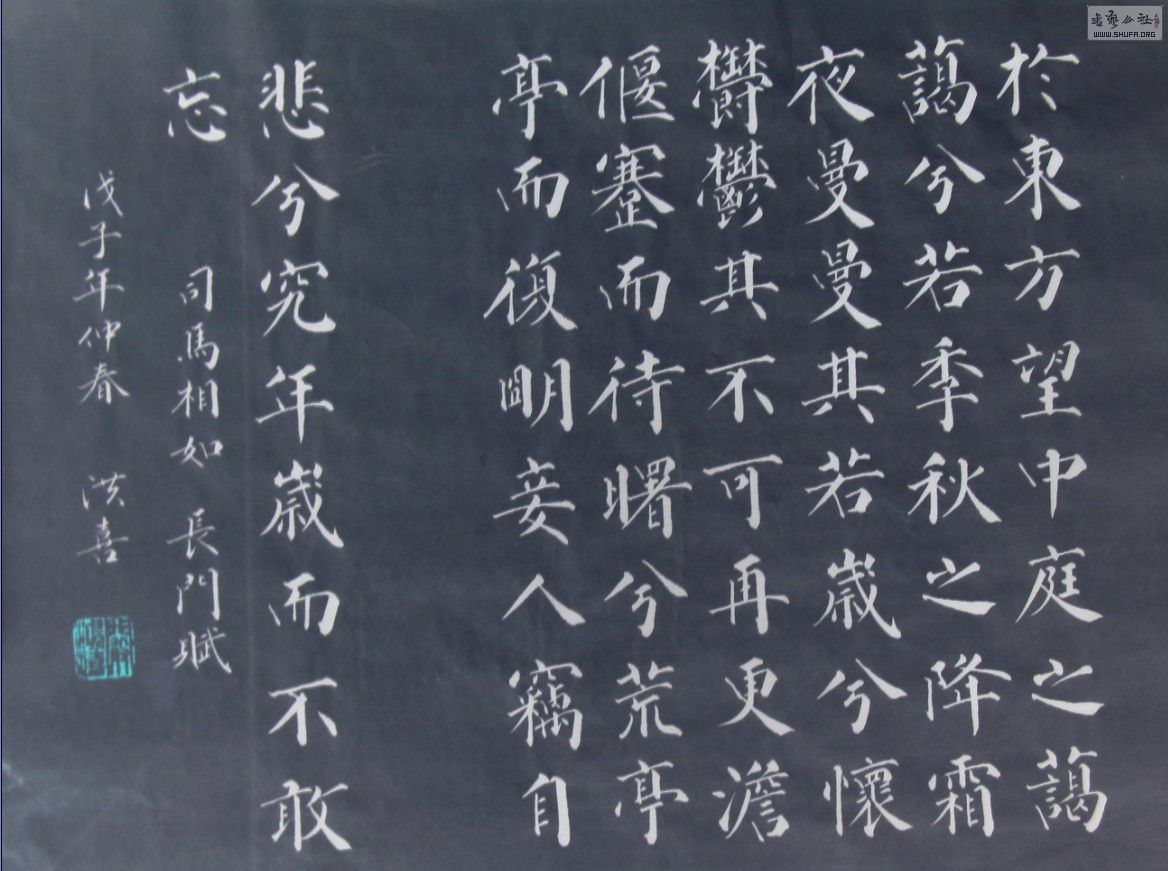 於東方望中庭之藹
藹兮若季秋之降霜
夜曼曼其若歲兮懷
鬱鬱其不可再更澹
偃蹇而待曙兮荒亭
亭而復明妾人竊自
悲兮究年歲而不敢
忘
司馬相如 長門賦
戊子年仲春 洪喜
WWW.SHUFA.ORG